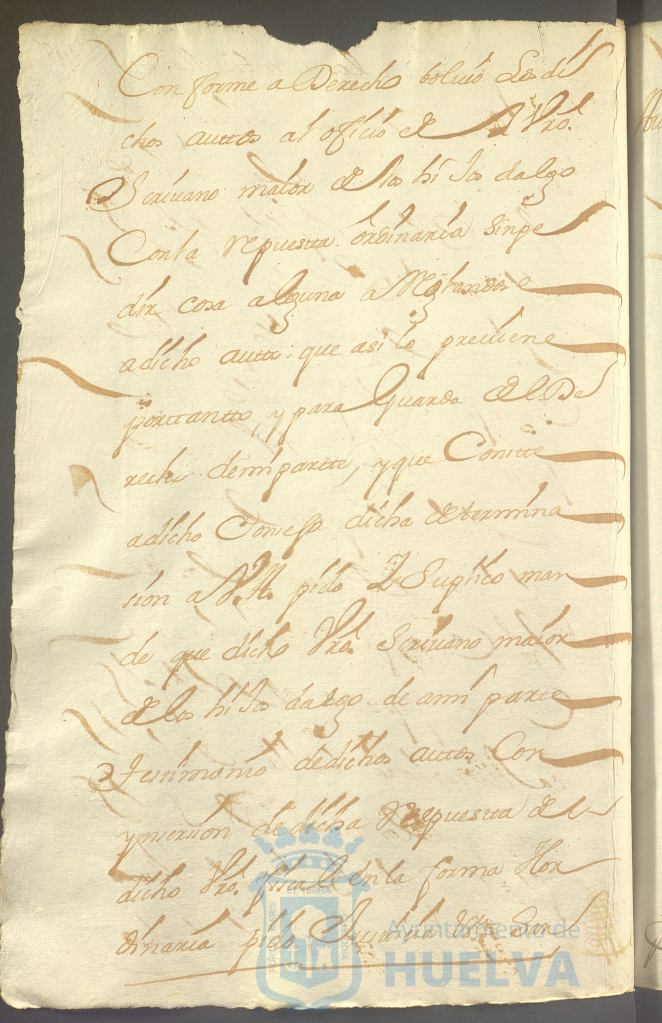 Conforme a Derecho bolvio Los di
chos auttos al oficio de Vro.
Scrivano maior de los hi Jos dalgo
Con la repuesta ordinaria Sinpe
dir cosa alguna a
adicho autto que asi lo previene
portantto, y para Guarda del De
recho demi partte, y que Conste
adicho Consejo dicha determina
cion a V. A. pido Y Suplico man
de que dicho Vro. Scrivano maior
de los hi Jos dalgo de ami parte
testimonio de dichos auttos Con
ynsercion de dicha Repuesta de
dicho Vro. fiscal en la forma Hor
dinaria pido Justicia
Ayuntamiento de
HUELVA